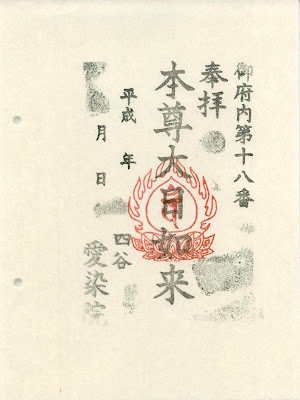 御府内第十八番
奉拝
本尊大日如来
平成 年
月 日
四谷
愛染院